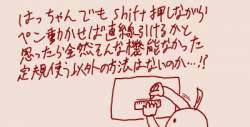 はっちゃんでもshift押しながら
ペン動かせば直線引けるかと
思ったら全然そんな機能なかった
定規使う以外の方法はないのか…!?